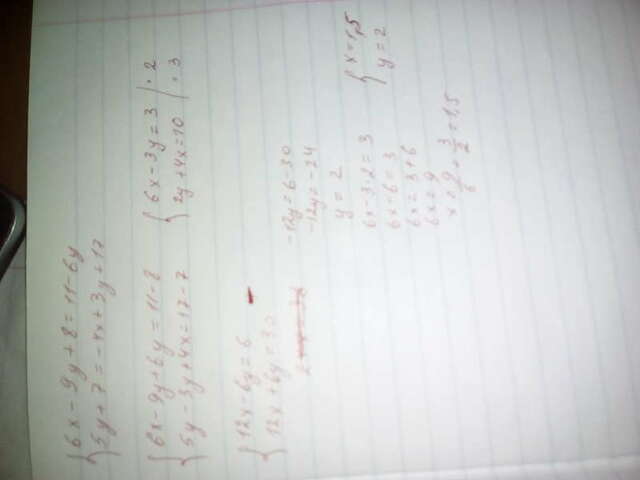 { 6x - 9y + 8 = 11 - 6y
5y + 7 = -4x + 3y + 17
{ 6x - 9y + 6y = 11 - 8
5y - 3y + 4x = 17 - 7
{ 6x - 3y = 3 | · 2
2y + 4x = 10 | · 3
{ 12x - 6y = 6 -
12x + 6y = 30
-12y = 6 - 30
-12y = -24
y = 2
6x - 3·2 = 3
6x - 6 = 3
6x = 3 + 6
6x = 9
x = 9/6 = 3/2 = 1,5
{ x = 1,5
y = 2